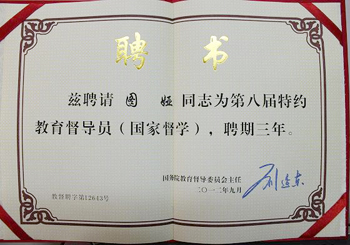 聘书
兹聘请 图 娅 同志为第八届特约
教育督导员(国家督学),聘期三年。
国务院教育督导委员会主任
二〇一二年九月
刘延东
教督聘字第12643号